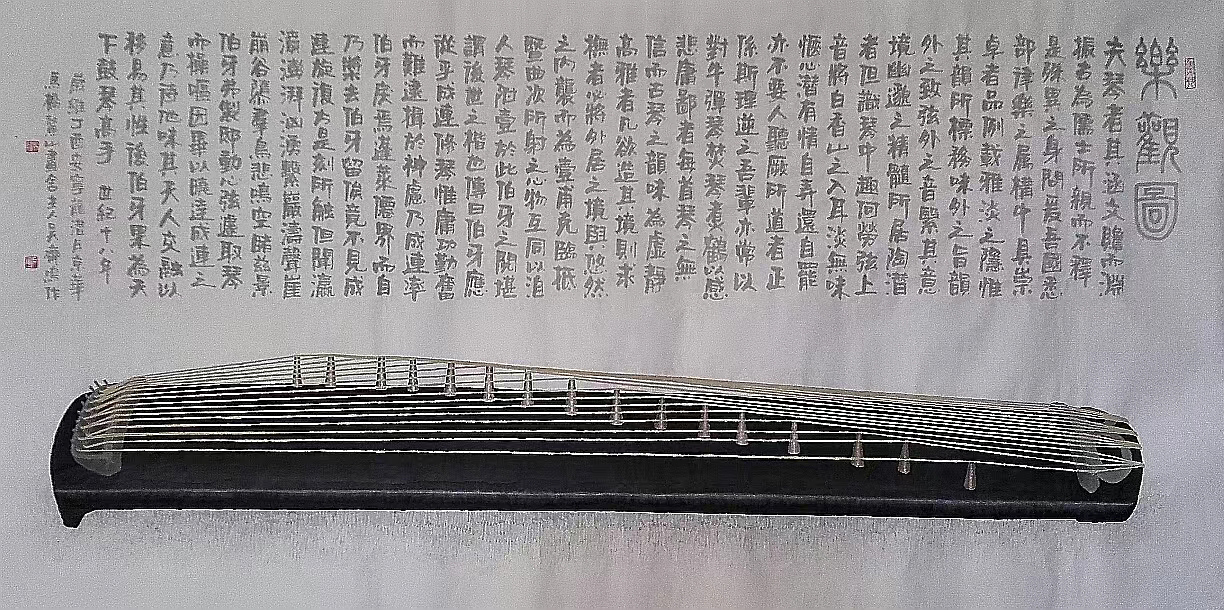 樂觀圖
夫琴者其涵文瞻而淵
振古為儒士所親而不釋
是殊異之身問爰吾國悉
部律樂之屬構中具崇
卓者品例載雅淡之隱惟
其韻所標務味外之旨韻
外之致弦外之音緊其意
境幽邃之精髓所居陶潛
者但識琴中趣何勞弦上
音將白香山之入耳淡無味
愜心潛有情自弄還自罷
亦不要人聽厥所道者正
係斯理逆之吾輩亦常以
對牛彈琴焚琴煮鶴以感
悲庸鄙者每首琴之無
信而古琴之韻味為虛靜
高雅者凡欲造其境則求
撫者必將外居之境與悠然
之內襲而為壹甫克臨抵
暨曲次所射之心物互同以洎
人琴附壹於此伯牙之開堪
謂後世之楷也傳曰伯牙應
從乎成連修琴惟庸功勤奮
而難達揖於神處乃成連率
伯牙戾焉蓬萊儒界而自
乃槳去伯牙留俟竟不見成
連旋復方是刻所觸但聞瀛
濱澎湃洶湧繫巖濤聲崖
崩谷隳羣鳥悲鳴空睹茲景
伯牙弗製即動心弦遽取琴
而操嘔因畢以曉達成連之
意乃蒞地味其天人交融以
移易其性後伯牙果為天
下鼓琴高手 世紀十八年
歲維丁酉